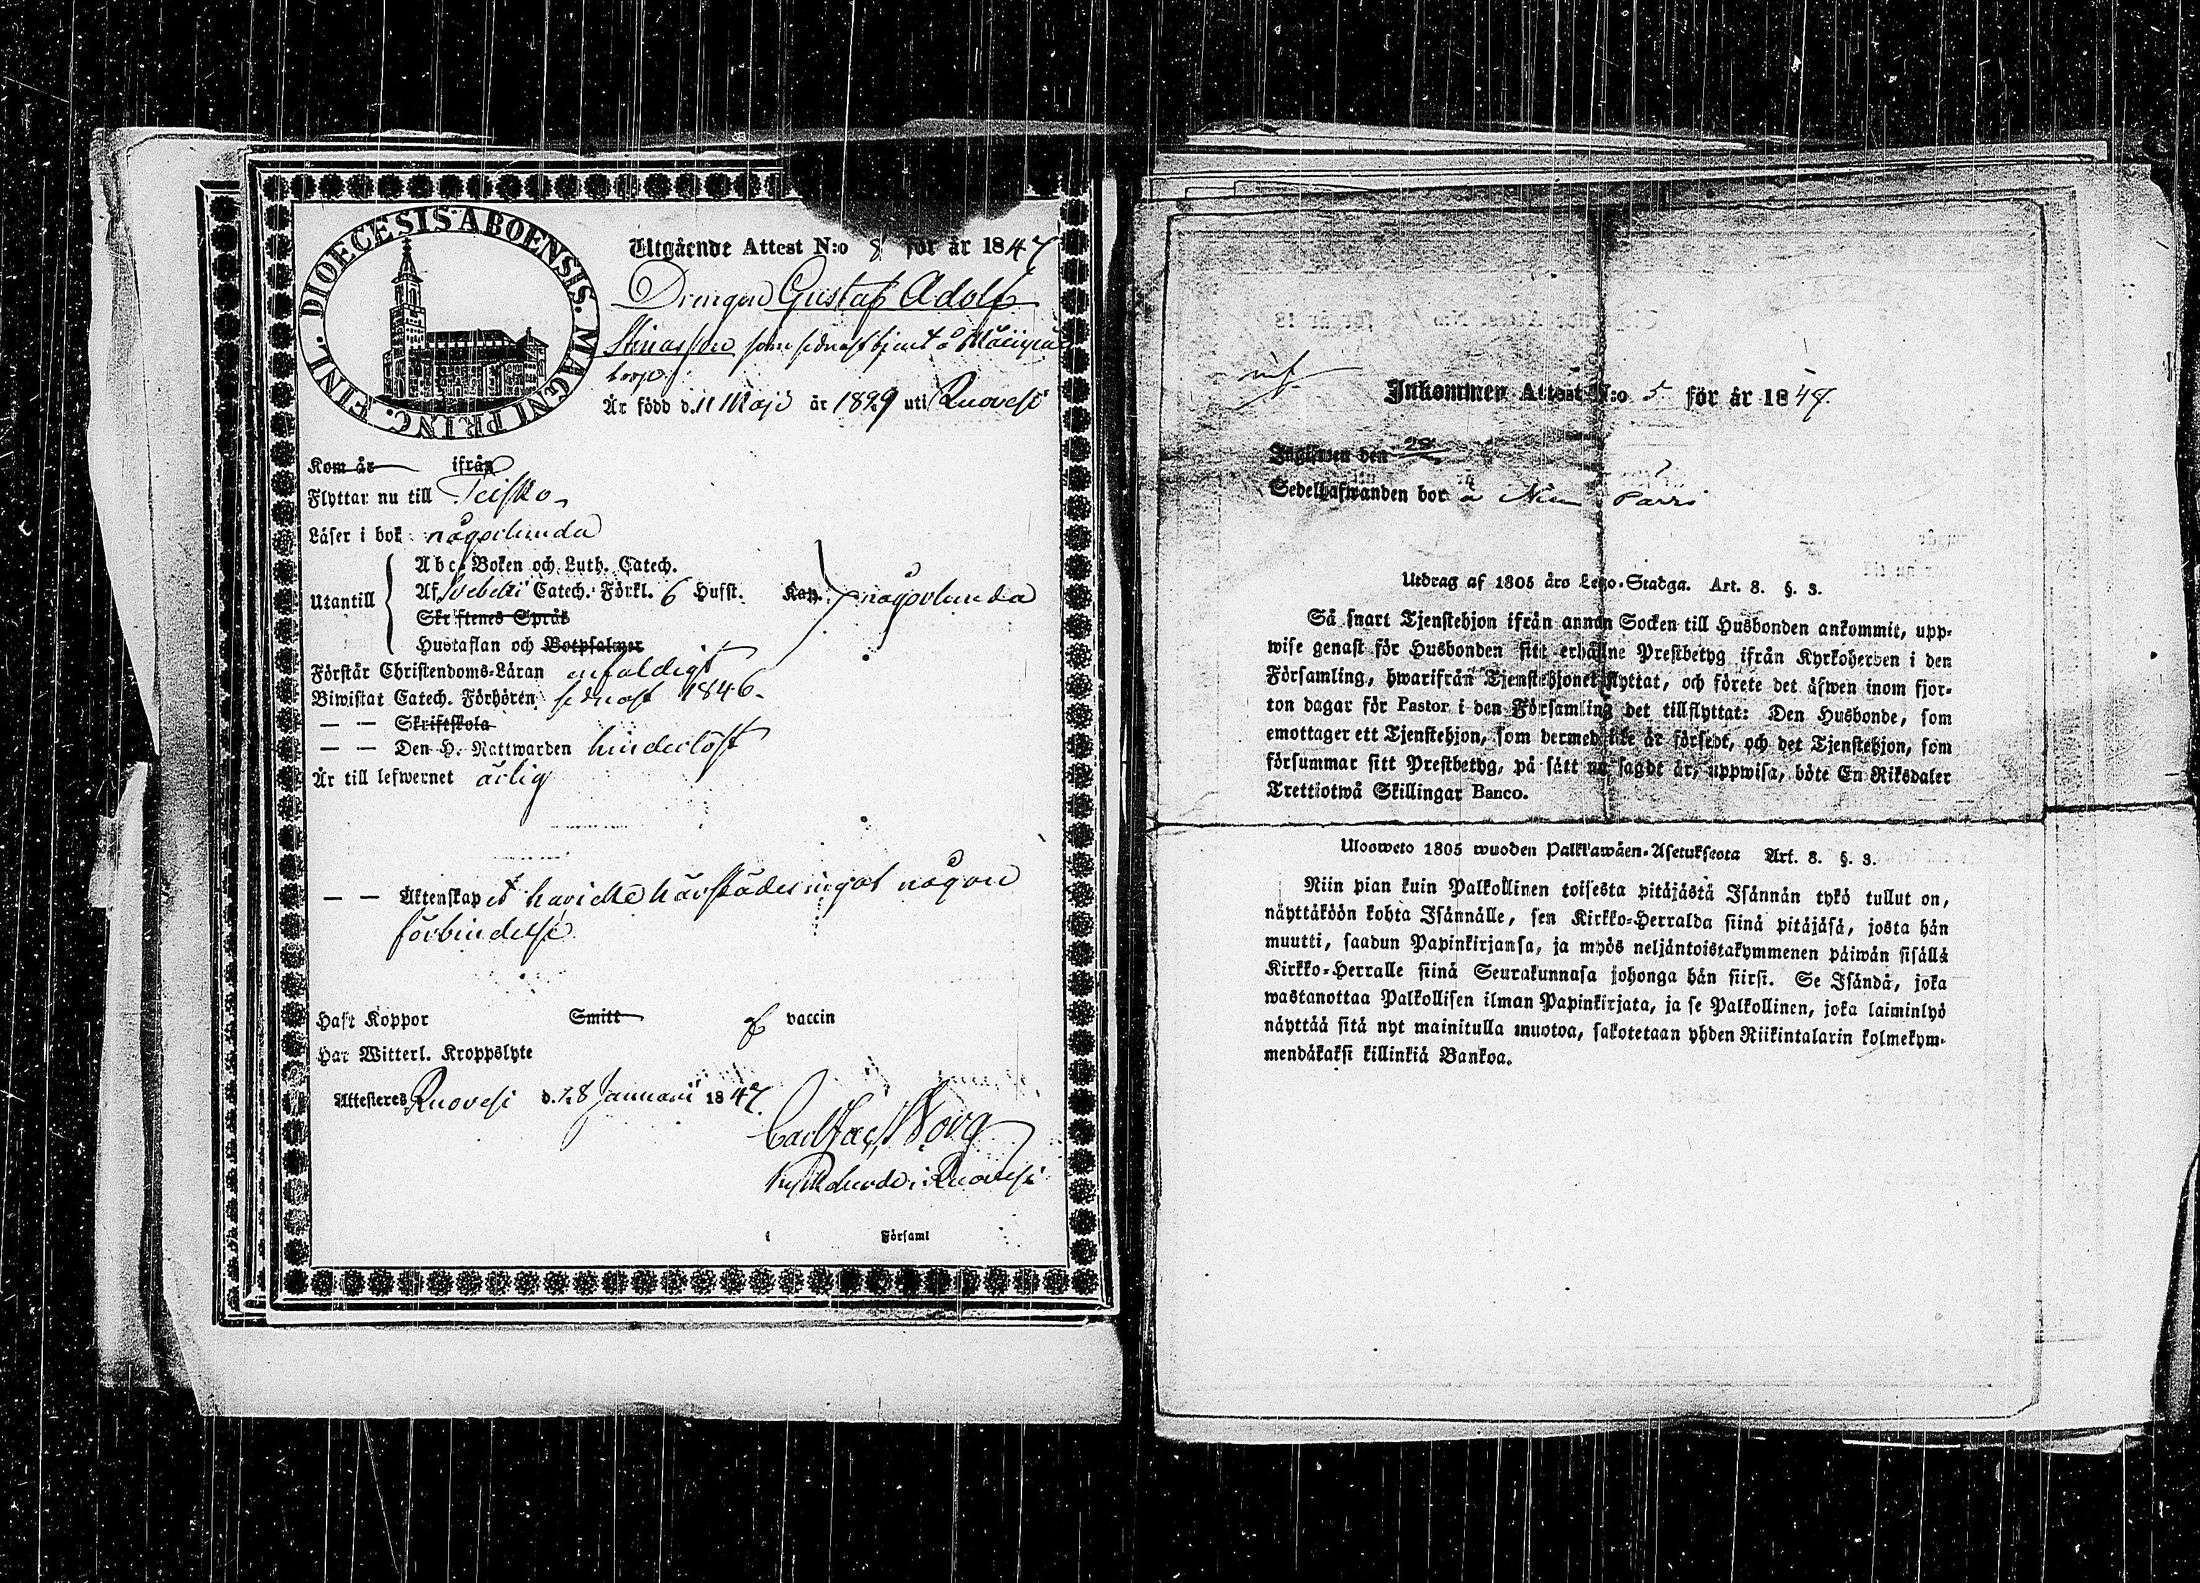 DIOECESIS ABOENSIS. MAGNI PRINC. FINL.
Utgående Attest N:o 8 för år 1847
Drengen Gustaf Adolf
som sednast tjent å
torp.
Är född d. 11 Maji år 1829 uti Ruovesi
Kom år ifrån
Flyttar nu till Teisko
Läser i bok någorlunda
Utantill
Abc-Boken och Luth. Catech.
Af Svebelii Catech. Förkl. 6 Hufst. Kap. någorlunda
Skriftenes Språk
Hustaflan och Botpsalmer
Förstår Christendoms-Läran enfaldigt
Biwistat Catech. Förhören sednast 1846.
— — Skriftskola
— — Den H. Nattwarden hinderlöst
Är till lefwernet ärlig
— — Äktenskap et har icke härstädes ingåt någon
förbindelse
Haft Koppor Smitt af vaccin
Har Witterl. Kroppslyte
Attesteres Ruovesi d. 28 Januarii 1847.
Carl Borg
Kyrkoherde i Ruovesi
i Församl
Inkommen Attest N:o 5 för år 1847.
Inglifwen den 28
Sedelhafwanden bor å Parri
Utdrag af 1805 års Lego-Stadga. Art. 8. §. 3.
Så snart Tjenstehjon ifrån annan Socken till Husbonden ankommit, upp-
wise genast för Husbonden sitt erhållne Prestbetyg ifrån Kyrkoherden i den
Församling, hwarifrån Tjenstehjonet flyttat, och förete det äfwen inom fjor-
ton dagar för Pastor i den Församling det tillflyttat: Den Husbonde, som
emottager ett Tjenstehjon, som dermed icke är försedt, och det Tjenstehjon, som
försummar sitt Prestbetyg, på sätt nu sagdt är, uppwisa, böte En Riksdaler
Trettiotwå Skillingar Banco.
Ulosweto 1805 wuoden Palkkawäen-Asetuksesta Art. 8. §. 3.
Niin pian kuin Palkollinen toisesta pitäjästä Isännän tykö tullut on,
näyttäköön kohta Isännälle, sen Kirkko-Herralda siinä pitäjäsä, josta hän
muutti, saadun Papinkirjansa, ja myös neljäntoistakymmenen päiwän sisällä
Kirkko-Herralle siinä Seurakunnasa johonga hän siirsi. Se Isändä, joka
wastanottaa Palkollisen ilman Papinkirjata, ja se Palkollinen, joka laiminlyö
näyttää sitä nyt mainitulla muotoa, sakotetaan yhden Riikintalarin kolmekym-
mendäkaksi killinkiä Bankoa.